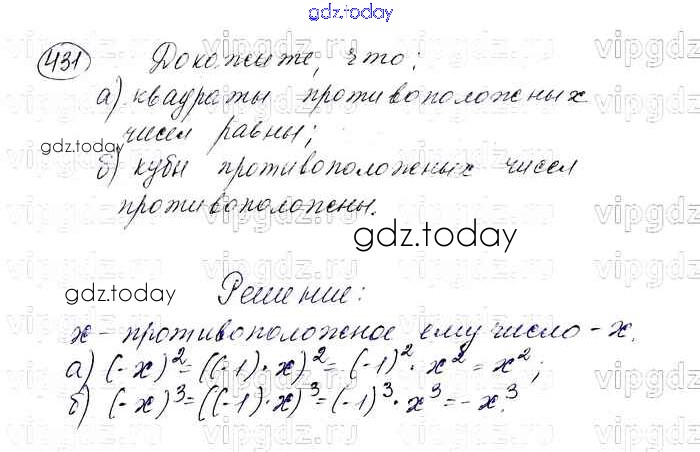 gdz.today
431 Докажите, что:
а) квадраты противоположных
чисел равны;
gdz.today
б) кубы противоположных чисел
противоположны.
gdz.today
gdz.today
Решение:
x - противоположное ему число - x.
а) (-x)² = ((-1)·x)² = (-1)²·x² = x²;
б) (-x)³ = ((-1)·x)³ = (-1)³·x³ = -x³.